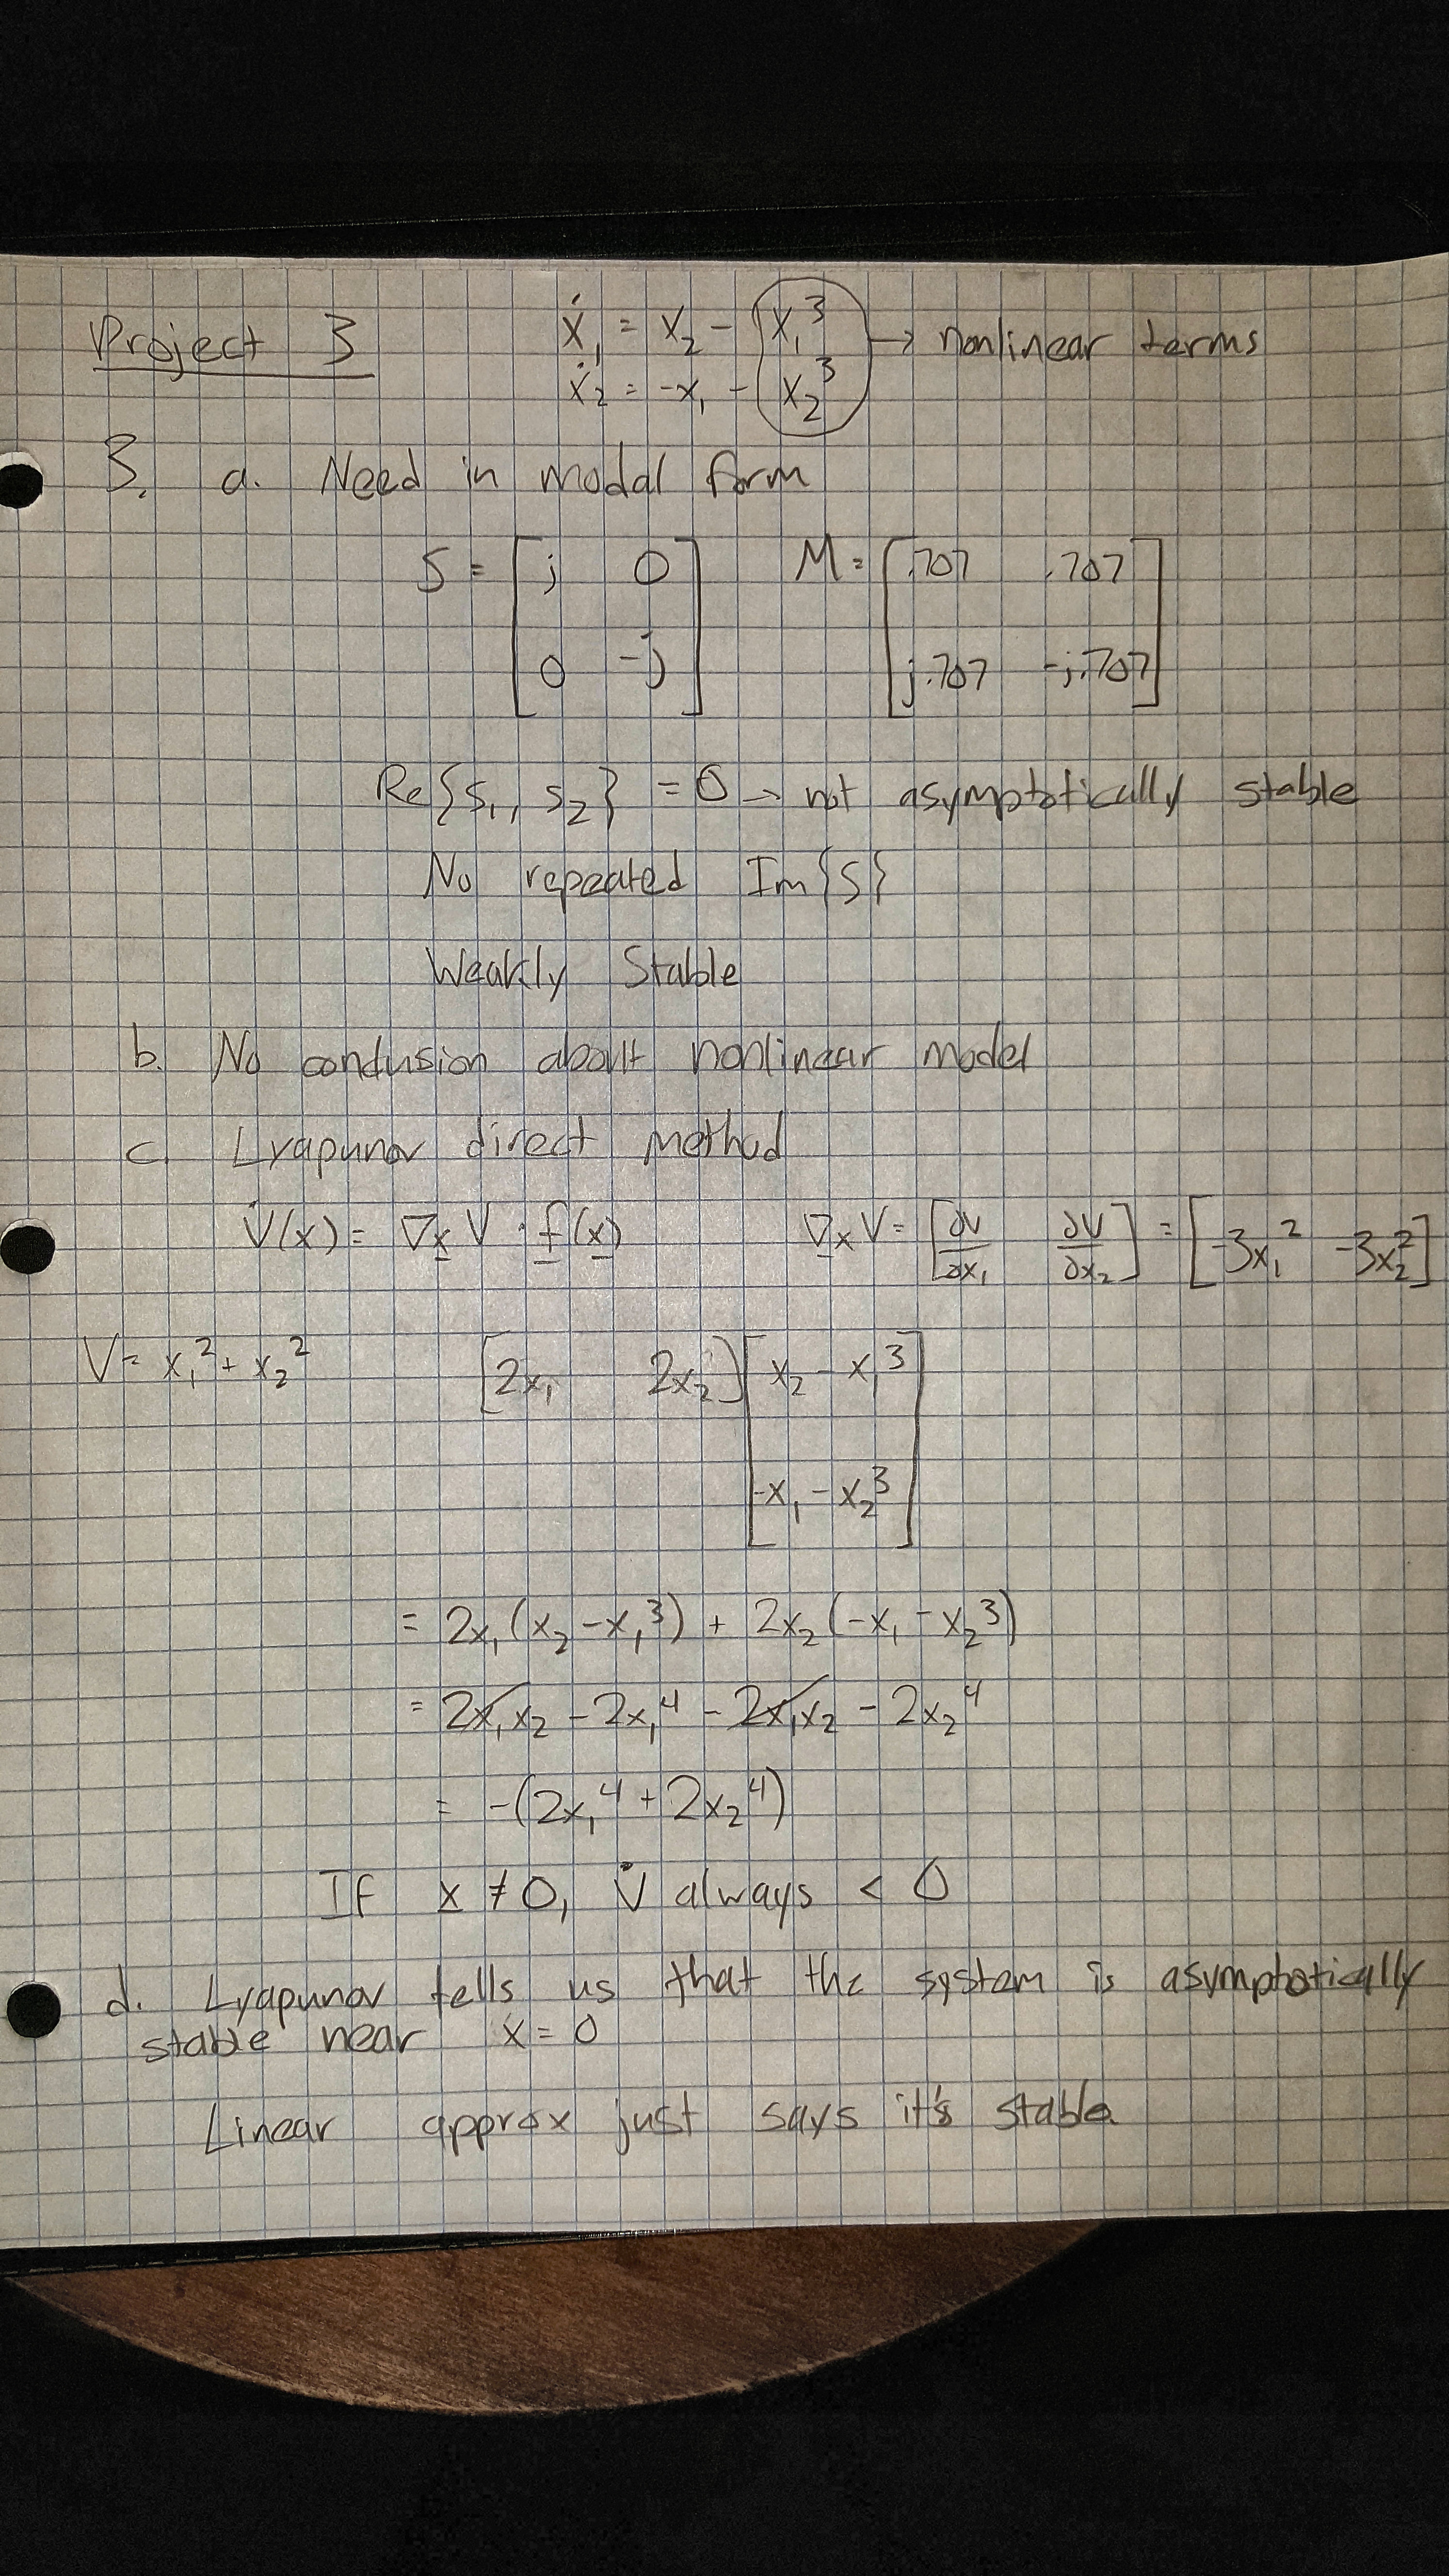 Project 3
ẋ₁ = x₂ - x₁³ → nonlinear terms
ẋ₂ = -x₁ - x₂³
3. a. Need in modal form
S = [j 0
0 -j] M = [.707 .707
j.707 -j.707]
Re{s₁, s₂} = 0 → not asymptotically stable
No repeated Im{S}
Weakly Stable
b. No conclusion about nonlinear model
c. Lyapunov direct method
V̇(x) = ∇ₓV · f(x) ∇ₓV = [∂V/∂x₁ ∂V/∂x₂] = [-3x₁² -3x₂²]
V = x₁² + x₂² [2x₁ 2x₂] [x₂ - x₁³
-x₁ - x₂³]
= 2x₁(x₂ - x₁³) + 2x₂(-x₁ - x₂³)
= 2x₁x₂ - 2x₁⁴ - 2x₁x₂ - 2x₂⁴
= -(2x₁⁴ + 2x₂⁴)
If x ≠ 0, V̇ always < 0
d. Lyapunov tells us that the system is asymptotically
stable near ẋ = 0
Linear approx just says it's stable